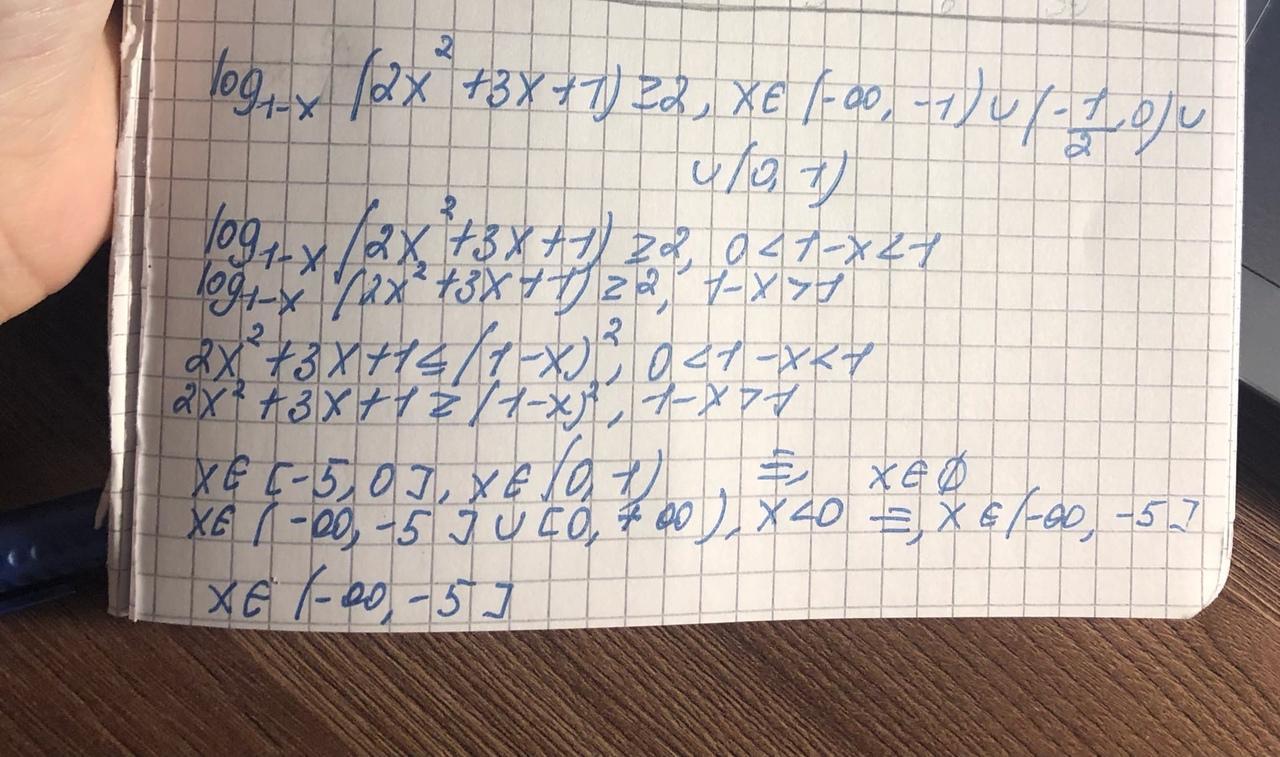 log₁₋ₓ (2x² + 3x + 1) ≥ 2, x ∈ (-∞, -1) ∪ (-1/2, 0) ∪
∪ (0, 1)
log₁₋ₓ (2x² + 3x + 1) ≥ 2, 0 < 1 - x < 1
log₁₋ₓ (2x² + 3x + 1) ≥ 2, 1 - x > 1
2x² + 3x + 1 ≤ (1 - x)², 0 < 1 - x < 1
2x² + 3x + 1 ≥ (1 - x)², 1 - x > 1
x ∈ [-5, 0], x ∈ (0, 1) =, x ∈ ∅
x ∈ (-∞, -5] ∪ [0, +∞), x < 0 =, x ∈ (-∞, -5]
x ∈ (-∞, -5]